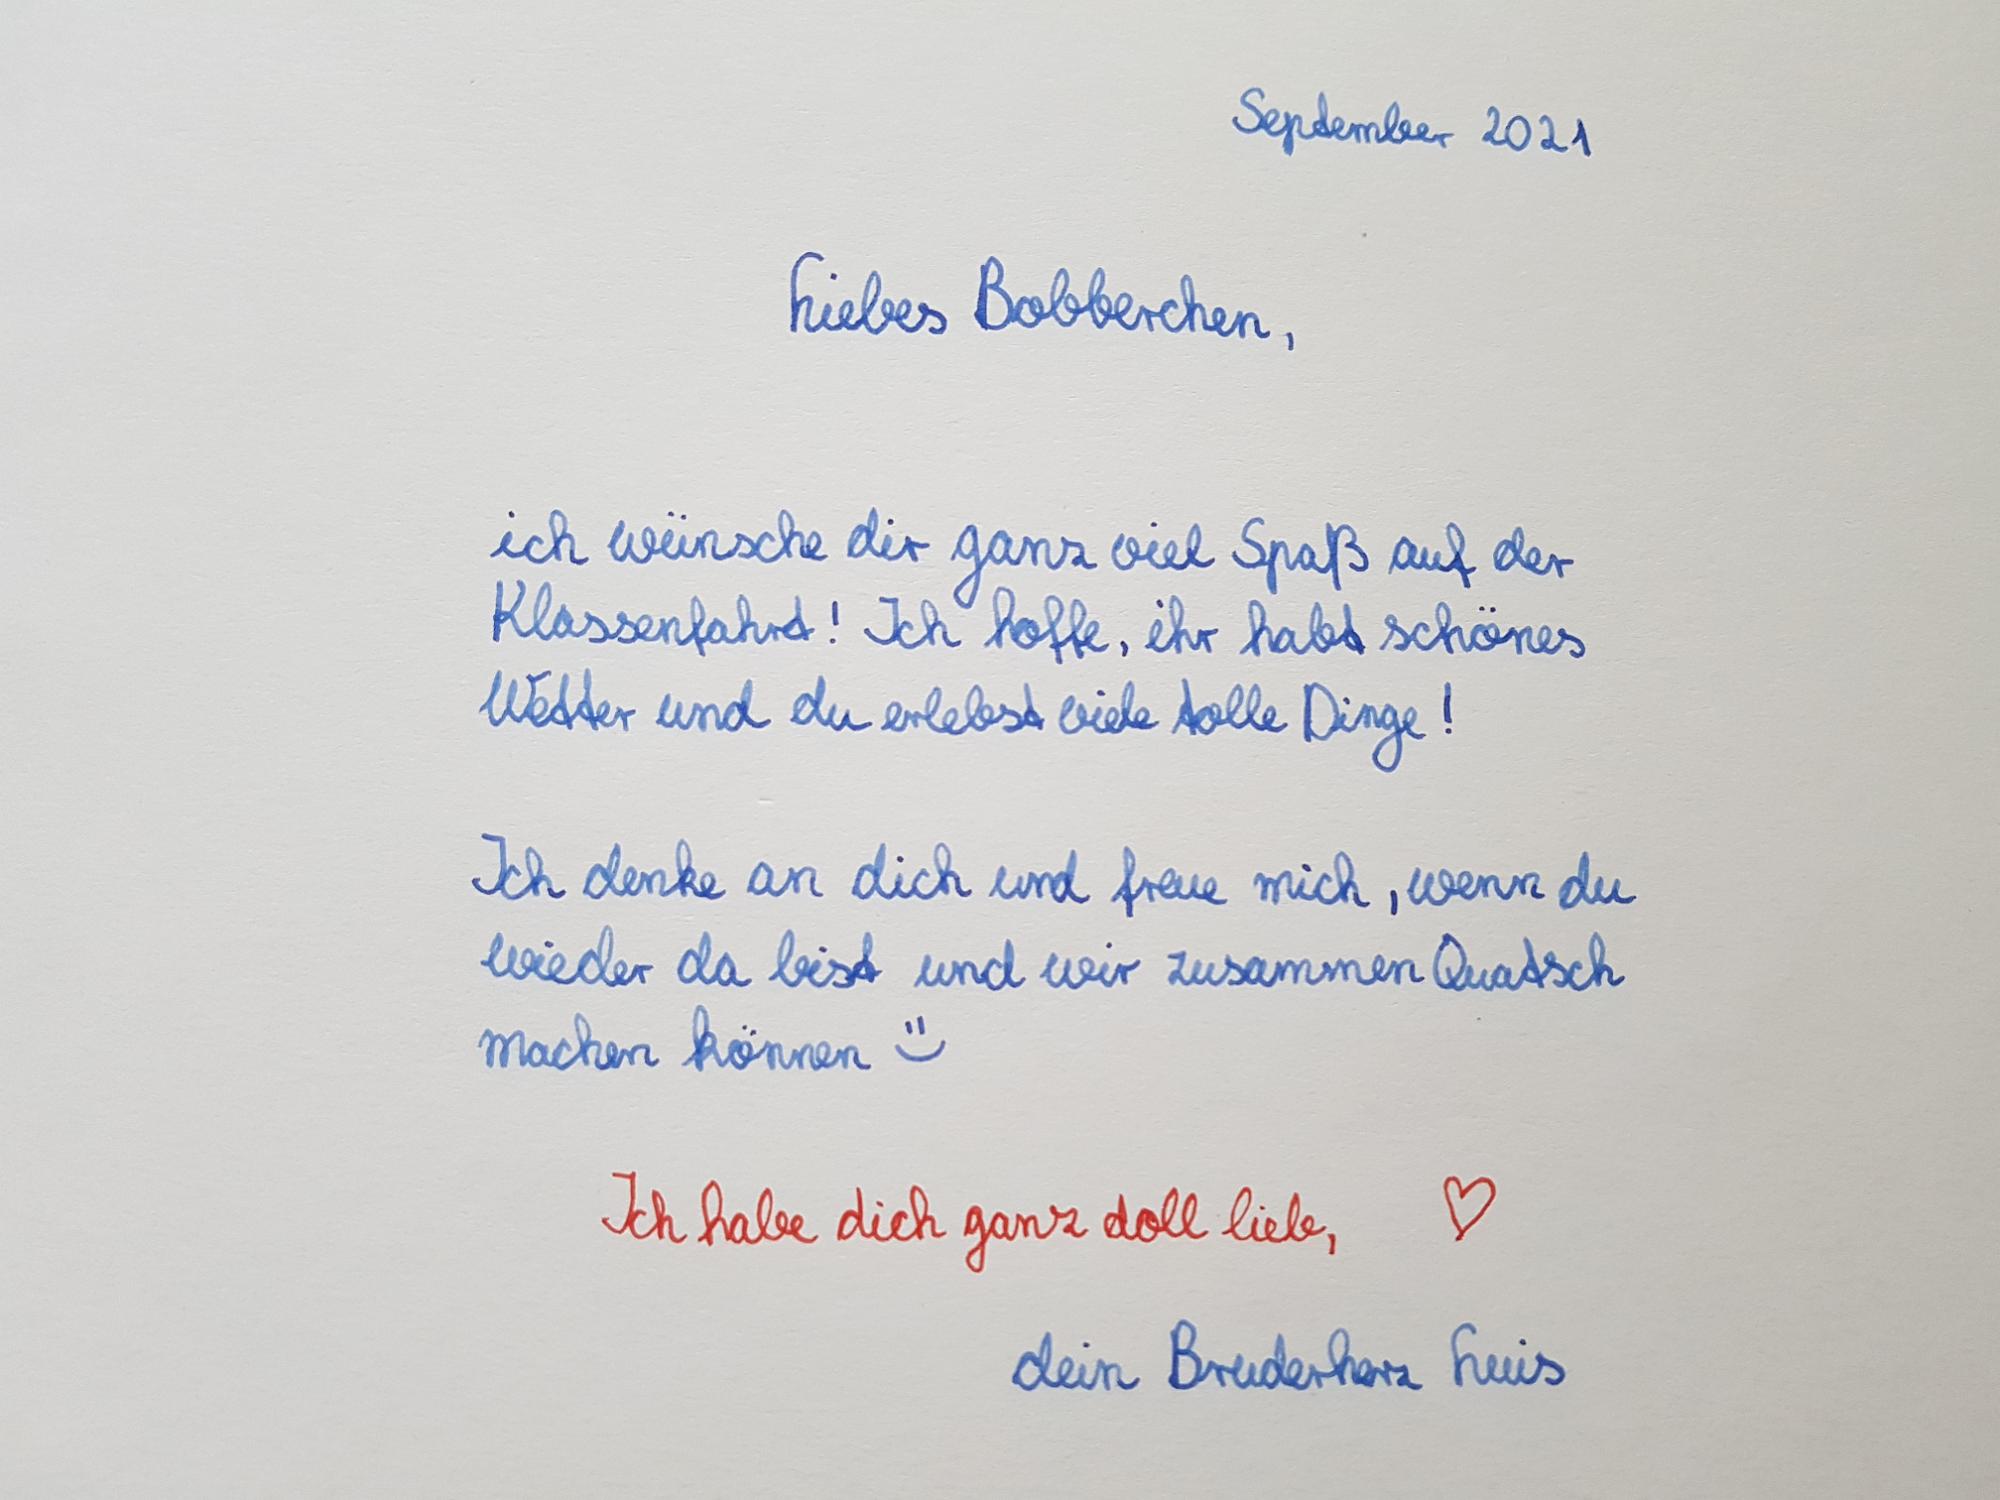 September 2021
Liebes Bobberchen,
ich wünsche dir ganz viel Spaß auf der
Klassenfahrt! Ich hoffe, ihr habt schönes
Wetter und du erlebst viele tolle Dinge!
Ich denke an dich und freue mich, wenn du
wieder da bist und wir zusammen Quatsch
machen können
Ich habe dich ganz doll lieb, ♡
dein Bruderherz Luis